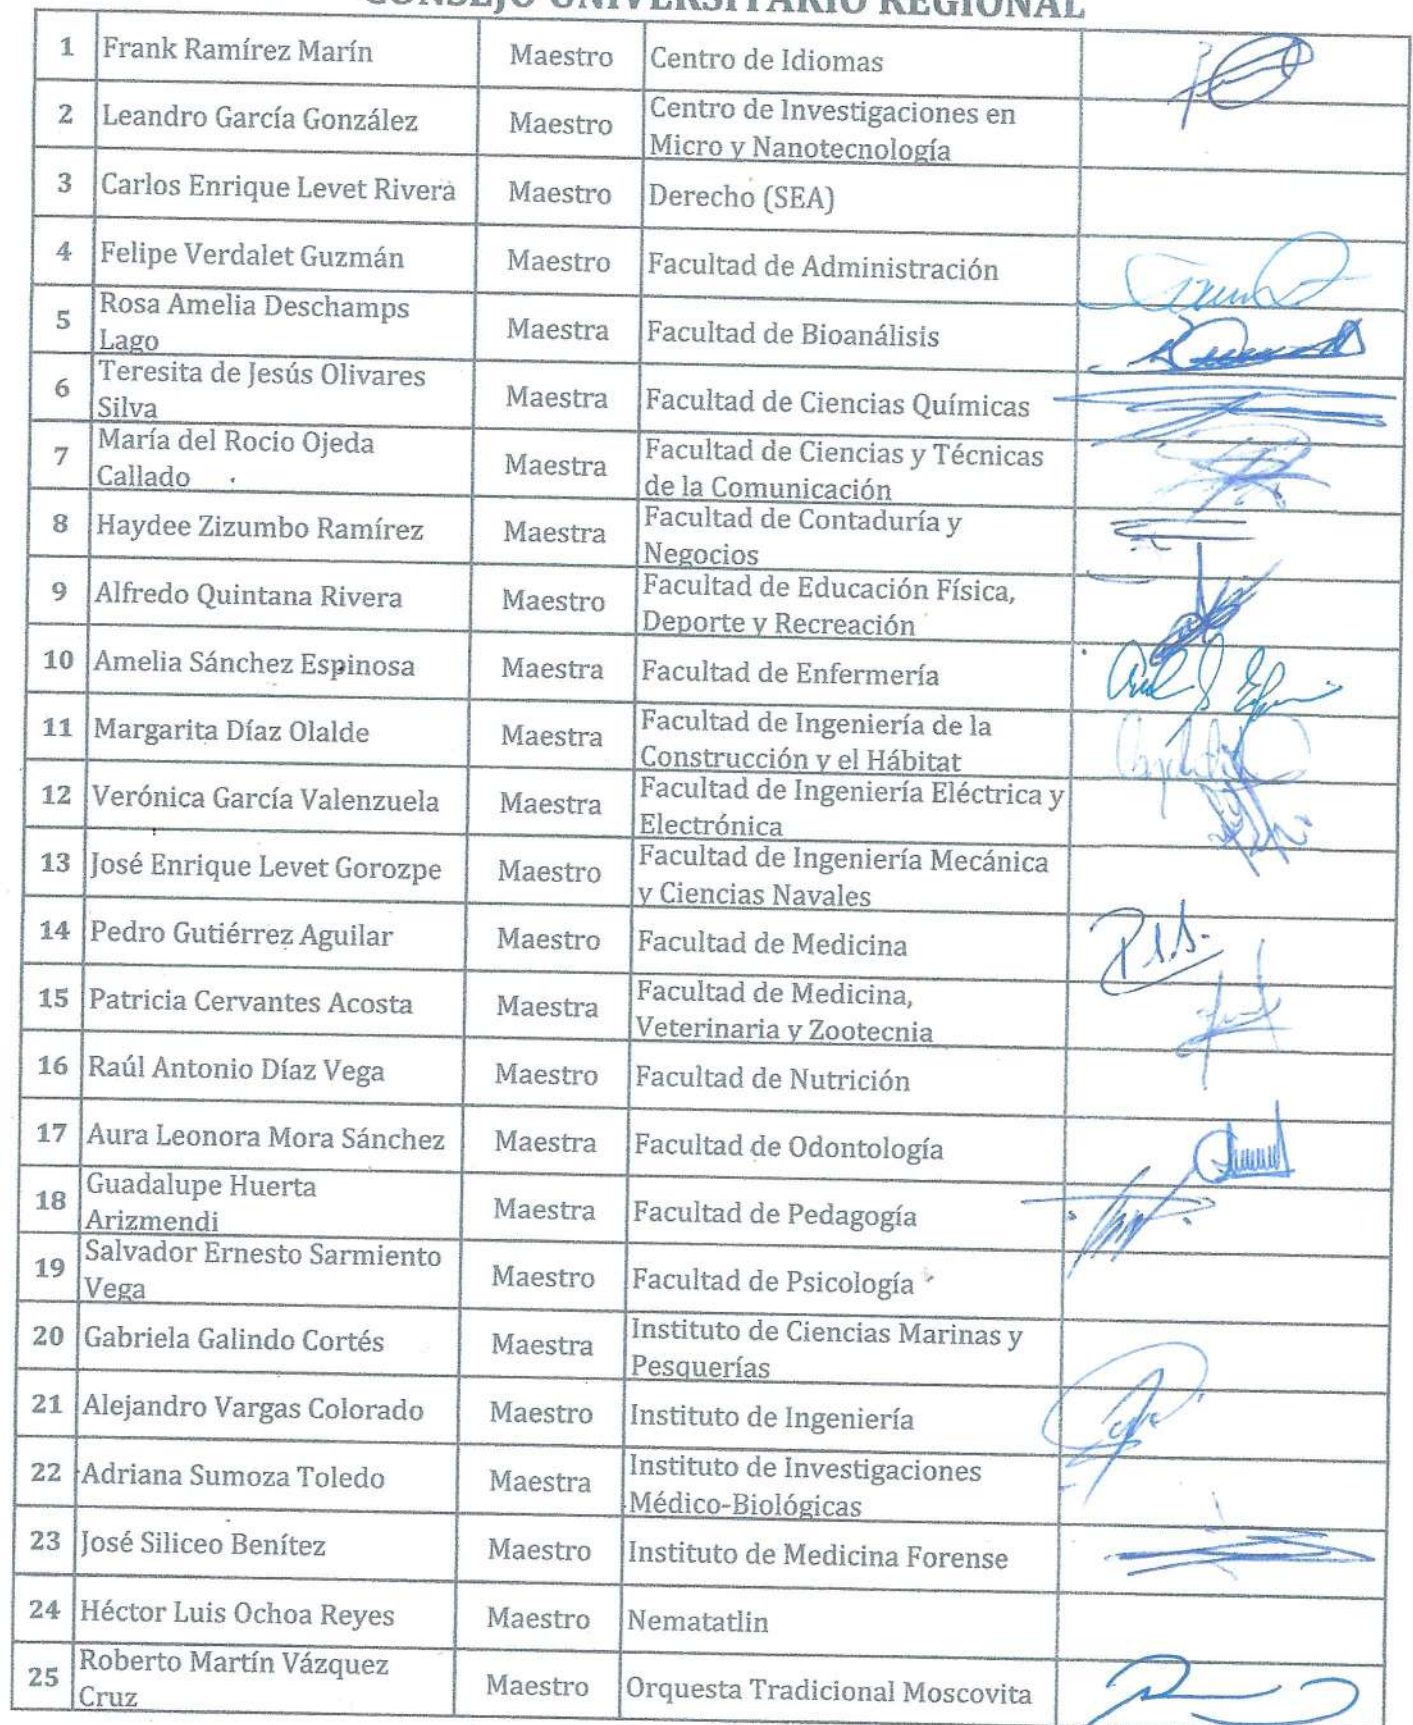 CONSEJO UNIVERSITARIO REGIONAL
1 Frank Ramírez Marín Maestro Centro de Idiomas
2 Leandro García González Maestro Centro de Investigaciones en
Micro y Nanotecnología
3 Carlos Enrique Levet Rivera Maestro Derecho (SEA)
4 Felipe Verdalet Guzmán Maestro Facultad de Administración
5 Rosa Amelia Deschamps
Lago Maestra Facultad de Bioanálisis
6 Teresita de Jesús Olivares
Silva Maestra Facultad de Ciencias Químicas
7 María del Rocio Ojeda
Callado Maestra Facultad de Ciencias y Técnicas
de la Comunicación
8 Haydee Zizumbo Ramírez Maestra Facultad de Contaduría y
Negocios
9 Alfredo Quintana Rivera Maestro Facultad de Educación Física,
Deporte y Recreación
10 Amelia Sánchez Espinosa Maestra Facultad de Enfermería
11 Margarita Díaz Olalde Maestra Facultad de Ingeniería de la
Construcción y el Hábitat
12 Verónica García Valenzuela Maestra Facultad de Ingeniería Eléctrica y
Electrónica
13 José Enrique Levet Gorozpe Maestro Facultad de Ingeniería Mecánica
y Ciencias Navales
14 Pedro Gutiérrez Aguilar Maestro Facultad de Medicina
15 Patricia Cervantes Acosta Maestra Facultad de Medicina,
Veterinaria y Zootecnia
16 Raúl Antonio Díaz Vega Maestro Facultad de Nutrición
17 Aura Leonora Mora Sánchez Maestra Facultad de Odontología
18 Guadalupe Huerta
Arizmendi Maestra Facultad de Pedagogía
19 Salvador Ernesto Sarmiento
Vega Maestro Facultad de Psicología
20 Gabriela Galindo Cortés Maestra Instituto de Ciencias Marinas y
Pesquerías
21 Alejandro Vargas Colorado Maestro Instituto de Ingeniería
22 Adriana Sumoza Toledo Maestra Instituto de Investigaciones
Médico-Biológicas
23 José Siliceo Benítez Maestro Instituto de Medicina Forense
24 Héctor Luis Ochoa Reyes Maestro Nematatlin
25 Roberto Martín Vázquez
Cruz Maestro Orquesta Tradicional Moscovita